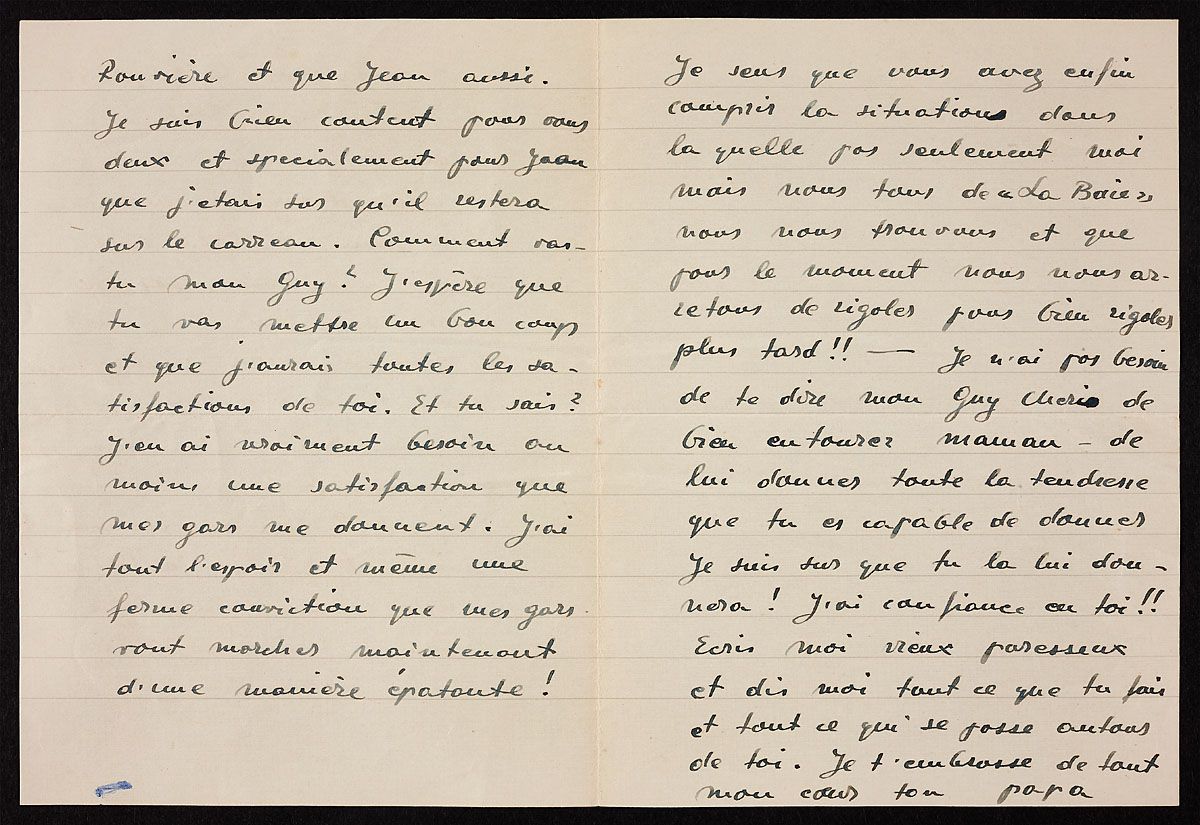 Rouvière et que Jean aussi.
Je suis bien content pour vous
deux et specialement pour Jean
que j'etais sur qu'il restera
sur le carreau. Comment vas-
tu mon Guy? J'espère que
tu vas mettre un bon coup
et que j'aurais toutes les sa-
tisfactions de toi. Et tu sais?
J'en ai vraiment besoin au
moins une satisfaction que
mes gars me donnent. J'ai
tout l'espoir et même une
ferme conviction que mes gars
vont marcher maintenant
d'une manière épatante!
Je sens que vous avez enfin
compris la situation dans
la quelle pas seulement moi
mais nous tous de «La Baie»
nous nous trouvons et que
pour le moment nous nous ar-
retons de rigoler pour bien rigoler
plus tard!! — Je n'ai pas besoin
de te dire mon Guy cheri de
bien entourer maman - de
lui donner toute la tendresse
que tu es capable de donner
Je suis sur que tu la lui don-
nera! J'ai confiance en toi!!
Ecris moi vieux paresseux
et dis moi tout ce que tu fais
et tout ce qui se passe autour
de toi. Je t'embrasse de tout
mon cœur ton papa